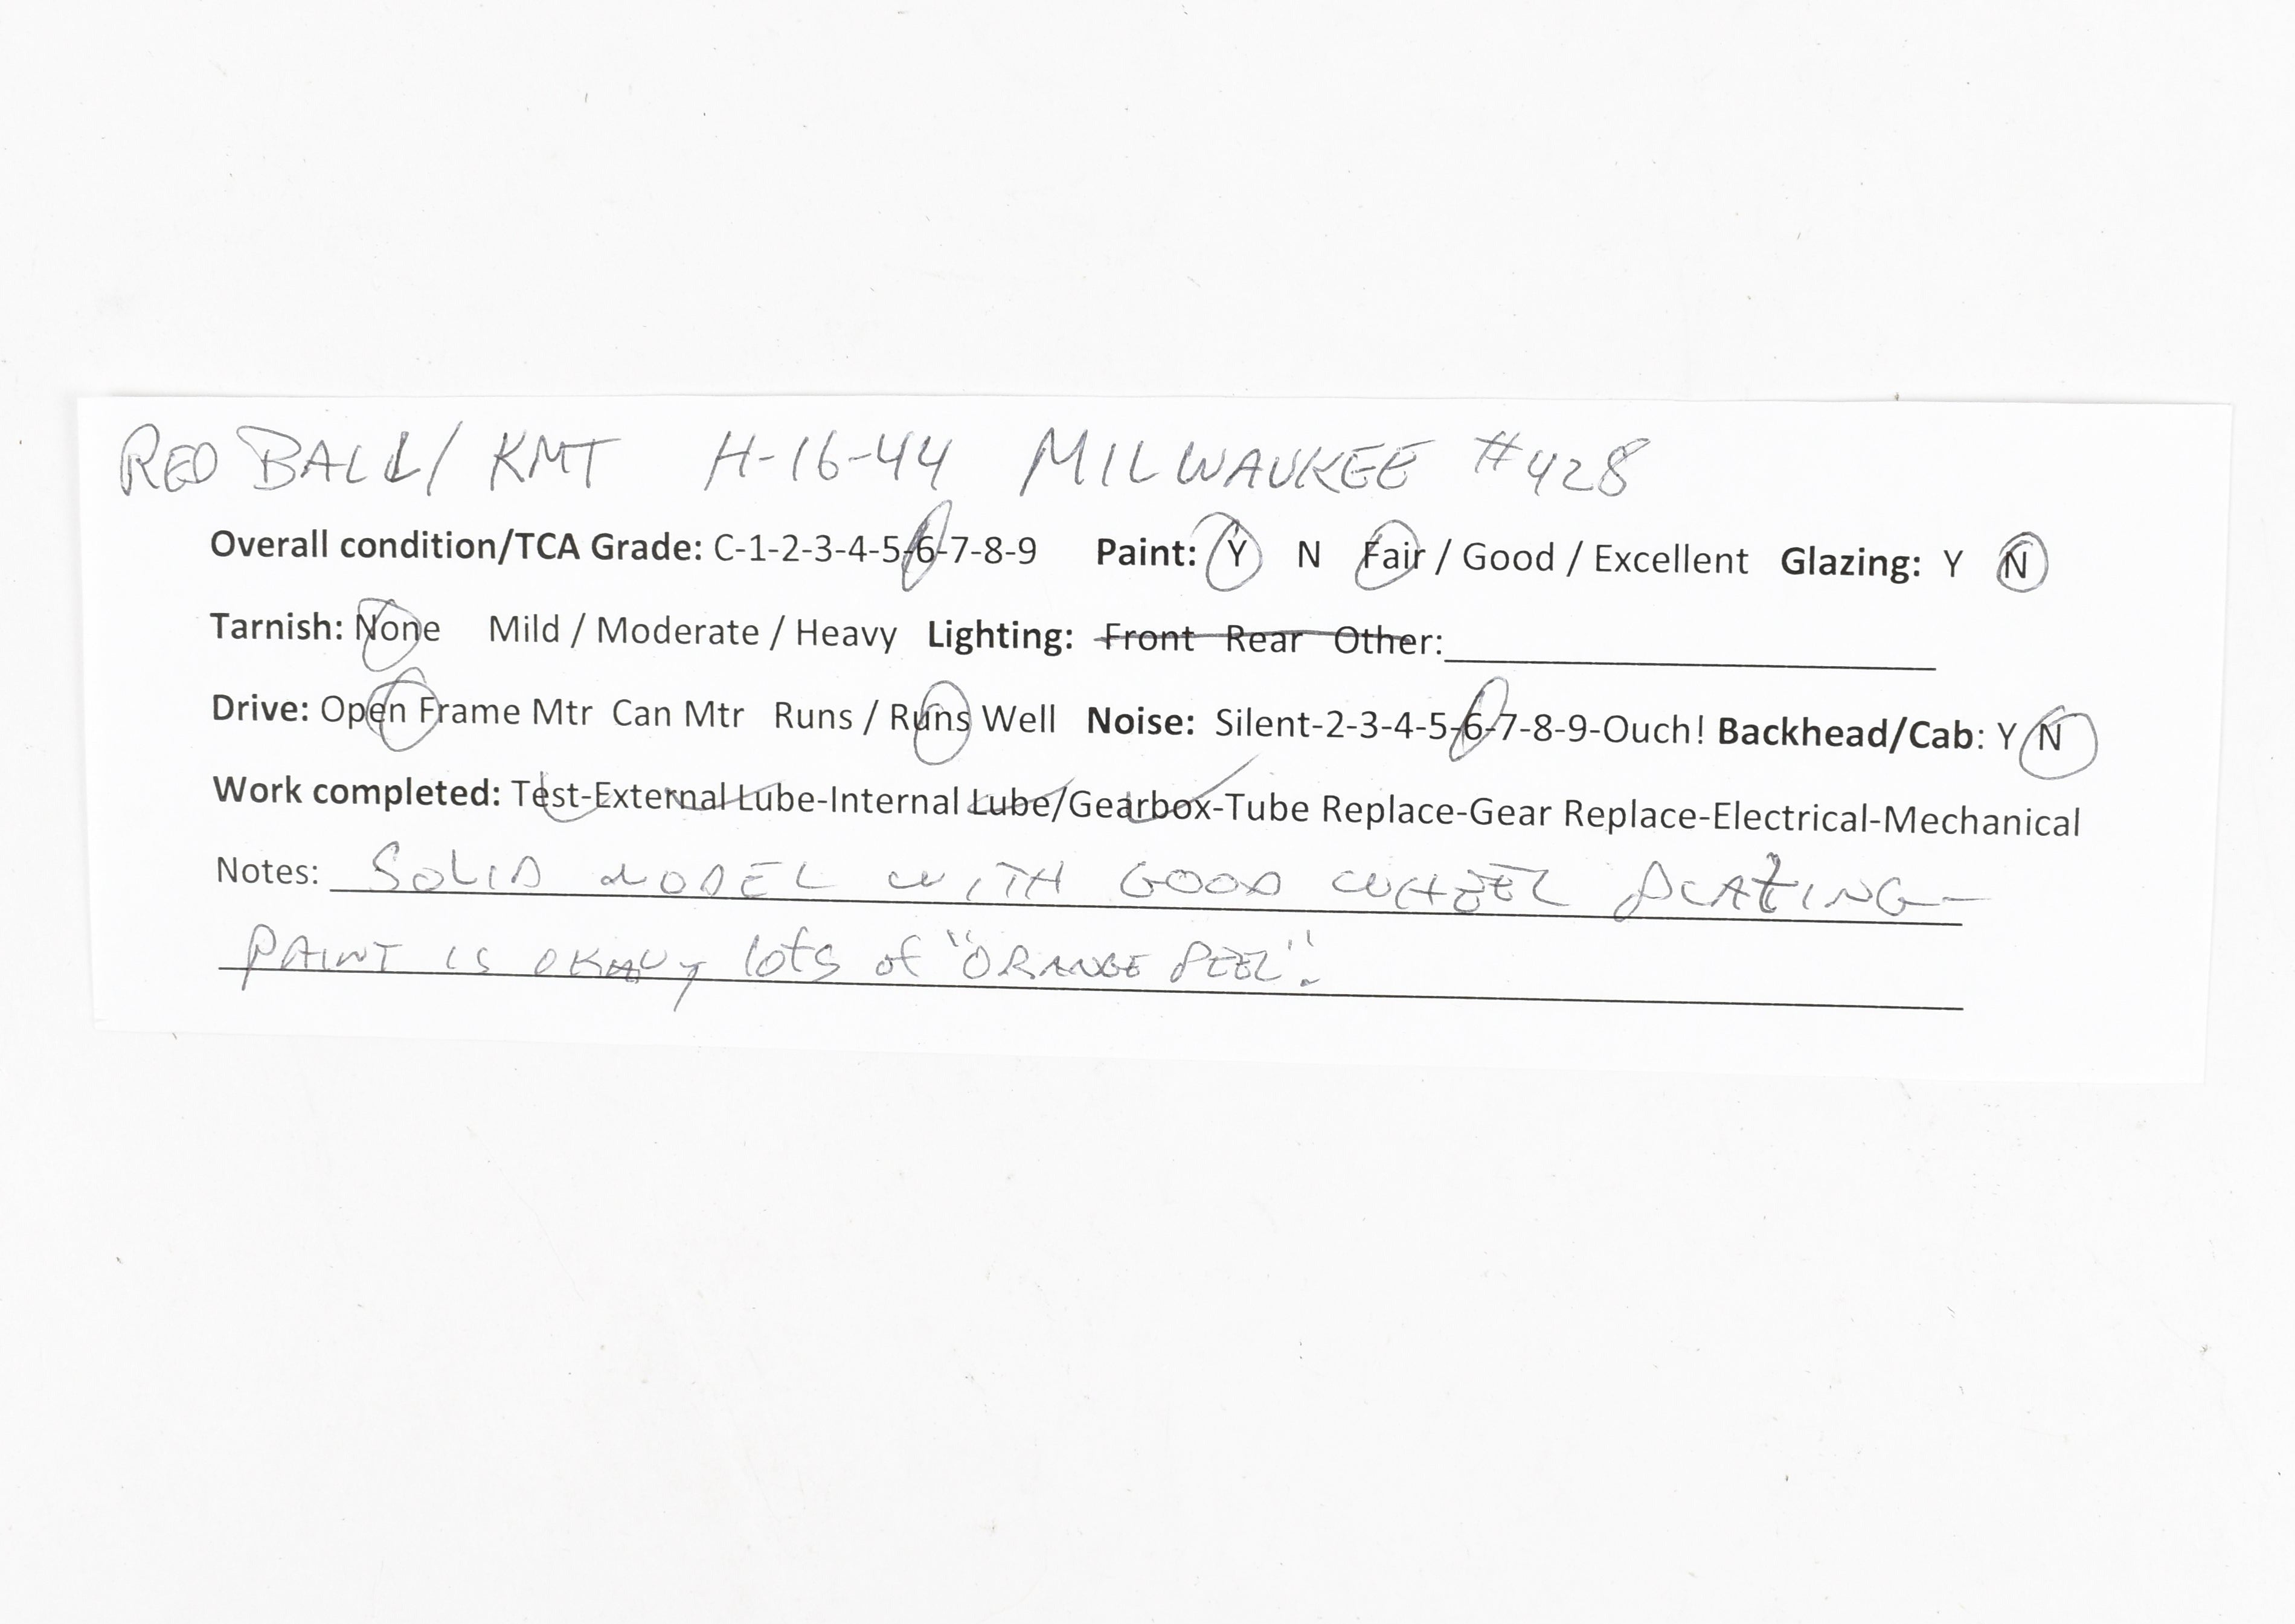 RED BALL/ KMT H-16-44 MILWAUKEE #428
Overall condition/TCA Grade: C-1-2-3-4-5-6-7-8-9 Paint: Y N Fair / Good / Excellent Glazing: Y N
Tarnish: None Mild / Moderate / Heavy Lighting: Front Rear Other:
Drive: Open Frame Mtr Can Mtr Runs / Runs Well Noise: Silent-2-3-4-5-6-7-8-9-Ouch! Backhead/Cab: Y N
Work completed: Test-External Lube-Internal Lube/Gearbox-Tube Replace-Gear Replace-Electrical-Mechanical
Notes: SOLID MODEL WITH GOOD WHEEL PLATING-
PAINT IS OKAY lots of "ORANGE PEEL".